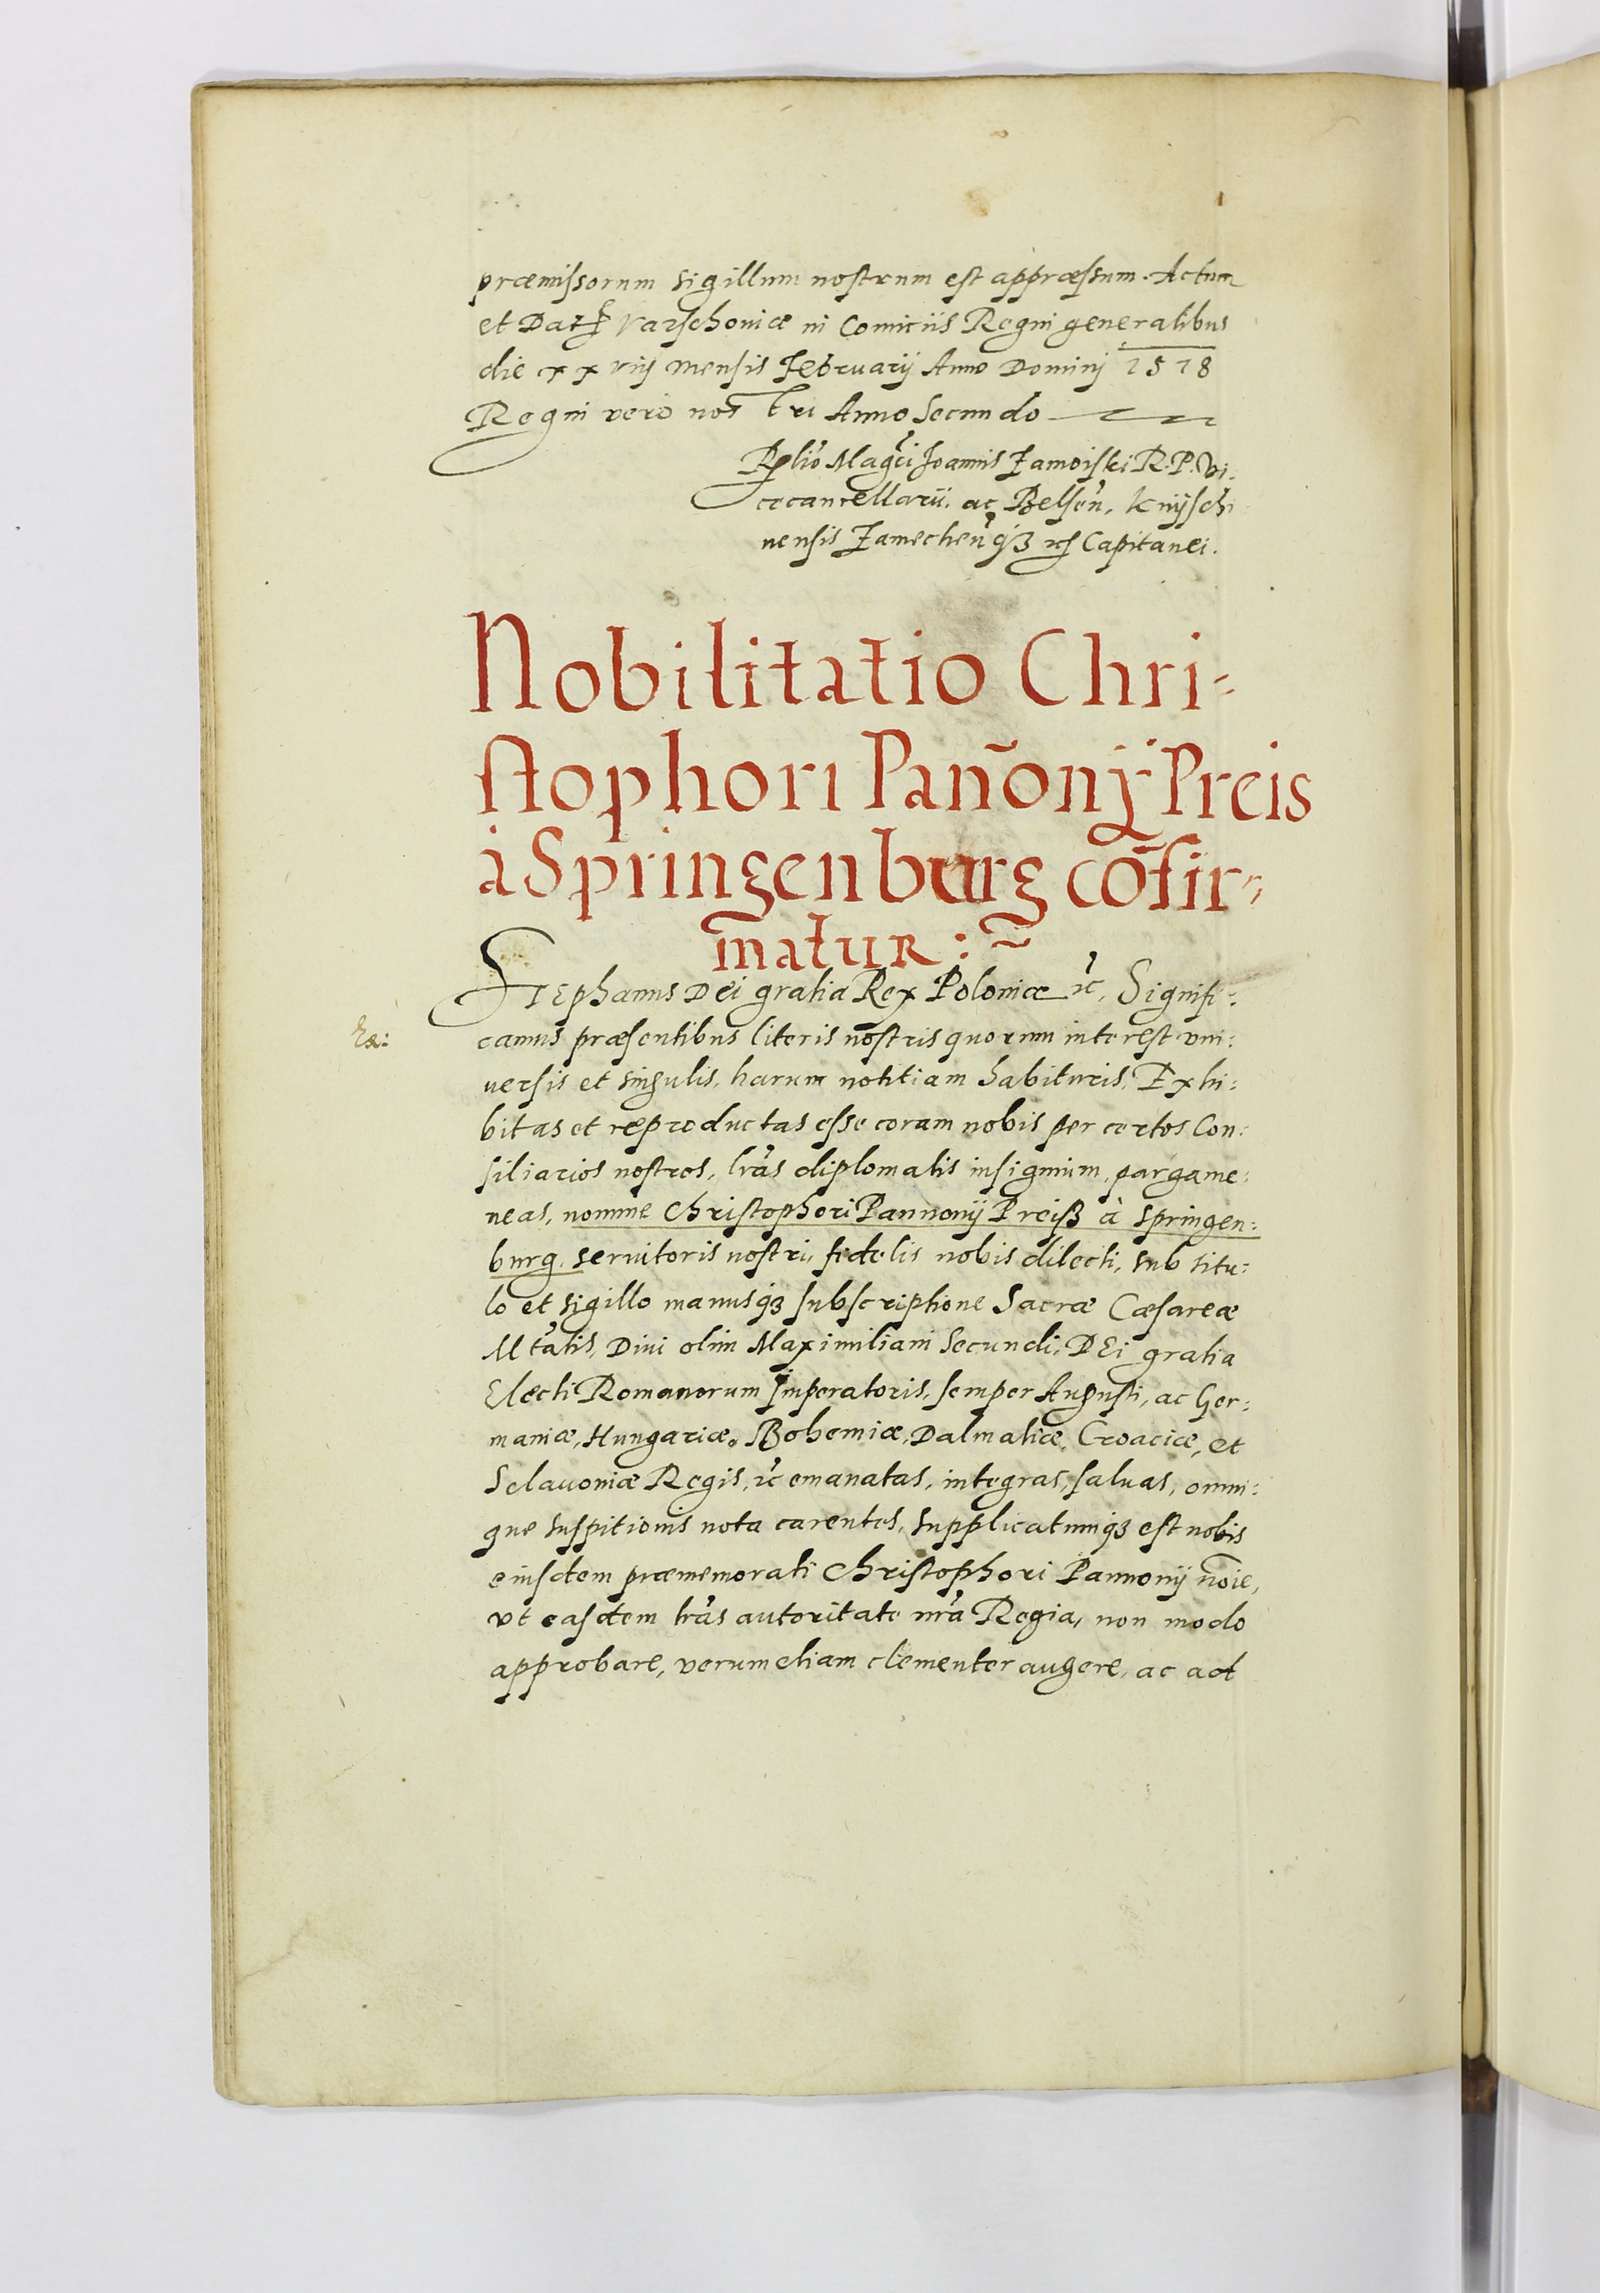 præmissorum sigillum nostrum est appræssum. Actum
et Dat Varschoviæ in Comitiis Regni generalibus
die xx viij mensis Februarij Anno Dominij 1578
Regni vero nostri Anno Secundo
Rełio Magci Joannis Zamoiski R. P. Vi-
cecancellarii. ac Belsen, Knijschi
nensis Zamechenqꝫ Capitanei.
Nobilitatio Chri-
stophori Pañonij Preis
à Springenburg cōfir-
matur:~
Stephanus Dei gratia Rex Poloniæ ꝛc, Signifi:
Ex:
camus præsentibus literis nostris quorum interest vni:
uersis et singulis, harum notitiam habituris, Exhi:
bitas et reproductas esse coram nobis per certos Con:
siliarios nostros, lras diplomatis insignium, pargame:
neas, nomine Christophori Pannonij Preiß à Springen:
burg, seruitoris nostri, fidelis nobis dilecti, sub titu:
lo et sigillo manusqꝫ subscriptione Sacræ Cæsareæ
Mtatis, Diui olim Maximiliani Secundi, DEi gratia
Electi Romanorum Imperatoris, semper Augusti, ac Ger:
maniæ, Hungariæ, Bohemiæ, Dalmatiæ, Croaciæ, et
Sclauoniæ Regis, ꝛc emanatas, integras, saluas, omni:
que suspitionis nota carentes, supplicatumqꝫ est nobis
eiusdem præmemorati Christophori Pannonij noīe,
vt easdem lras autoritate nra Regia, non modo
approbare, verum etiam clementer augere, ac ad